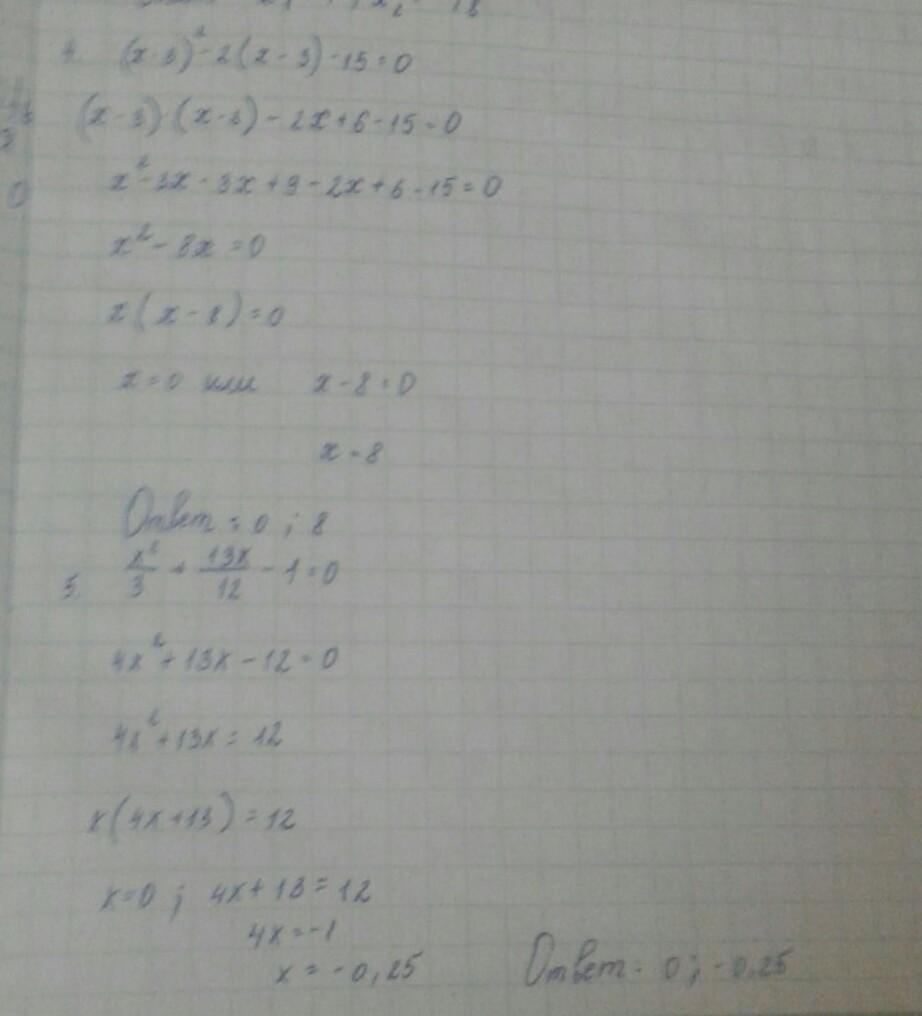 4. (x-3)²-2(x-3)-15=0
(x-3)(x-3)-2x+6-15=0
x²-3x-3x+9-2x+6-15=0
x²-8x=0
x(x-8)=0
x=0 или x-8=0
x=8
Ответ: 0; 8
5. x²/3 + 13x/12 - 1=0
4x²+13x-12=0
4x²+13x=12
x(4x+13)=12
x=0; 4x+13=12
4x=-1
x=-0,25
Ответ: 0; -0,25